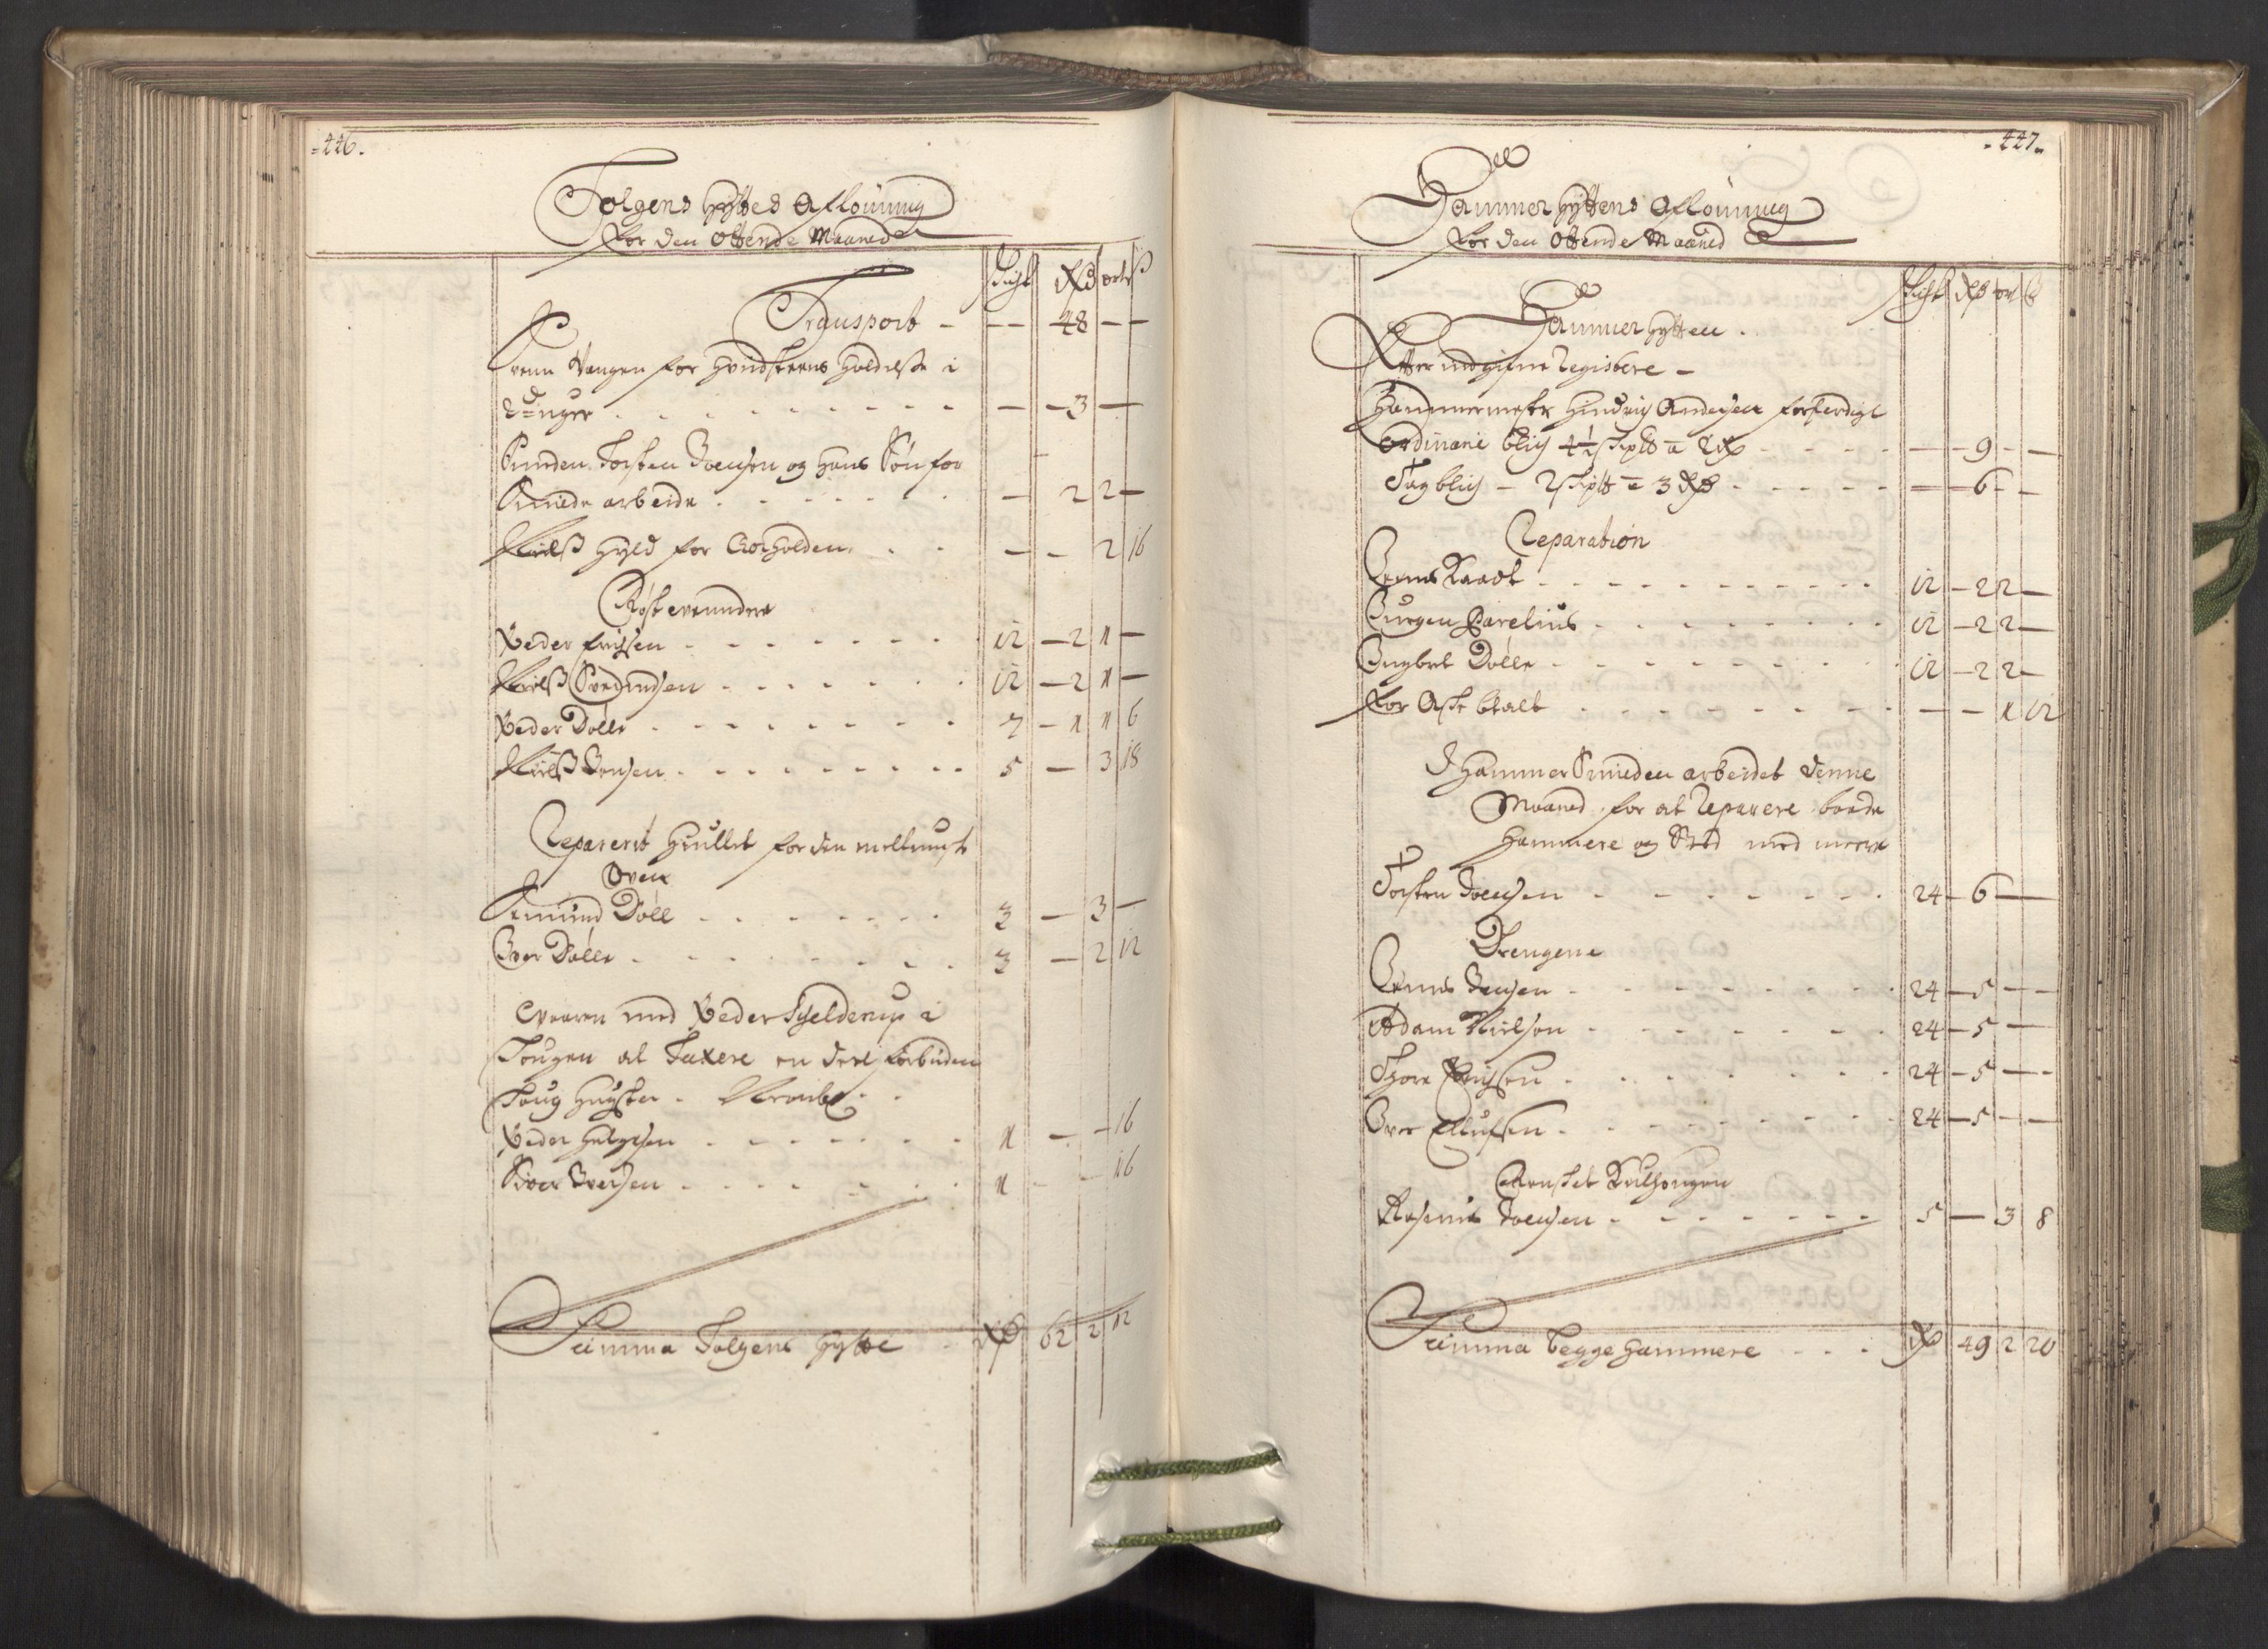 446.
Tolgens Hyttes Aflönning
for den Ottende Maaned
Skicht Rd ort ß
Transport - - - 48 - -
Svenn Vangen for Hundsteens Holdelse i
2de uger - - 3 -
Smeden Torsten Joensen og hans Sön for
Smide arbeide - 2 2 -
Nielß Hyld for Rorholden - - 2 16
Röstevenndere
Peder Erichsen 12 - 2 1 -
Nielß Svendsen 12 - 2 1 -
Peder Dölle 7 - 1 1 6
Nielß Jensen 5 - 3 18
Reparerit Hiullet for den mellemste
Oven
Amund Döll 3 - 3 -
Iver Dölle 3 - 2 12
Vaaren med Peder Schielderup i
Skougen at Taxere en deel forbuden
Skoug
Peder Helgesen 1 - - 16
Siver Iversen 1 - - 16
Summa Tolgens Hytte Rd 62 2 12
447.
Hammer Hyttens Aflönning
for den Ottende Maaned
Skicht Rd ort ß
Hammer Hytten
Efter indgifne Registere -
Hammermester Hindrich Andersen forferdiget
Ordinarie blich 4 1/2 skpld a 2 Rd - - 9 - -
Tag blich - 2 skpld a 3 Rd - - 6 - -
Reparation
Jens Kaadt 12 - 2 2 -
Jürgen Parelius 12 - 2 2 -
Engebret Dölle 12 - 2 2 -
For Aske betalt - - 1 12
I Hammer Smeden arbeidet denne
Maaned for at Reparere baade
Hammere og Sted med meere
Torsten Joensen 24 - 6 -
Drengene
Jens Jensen 24 - 5 - -
Adam Nielsen 24 - 5 -
Thore Erichsen 24 - 5 - -
Iver Ellufsen 24 - 5 - -
Rensket Kulhougen
Rasmus Joensen 5 - 3 8
Summa begge Hammere Rd 49 2 20